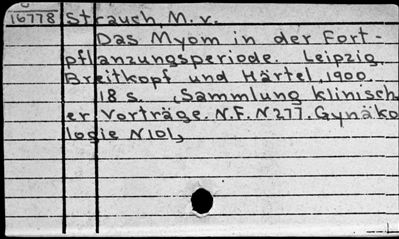 16778 Strauch, M. v.
Das Myom in der Fort-
pflanzungsperiode. Leipzig,
Breitkopf und Härtel, 1900.
18 s. (Sammlung klinisch
er Vorträge. N.F. N 277. Gynäko
logie N 101,